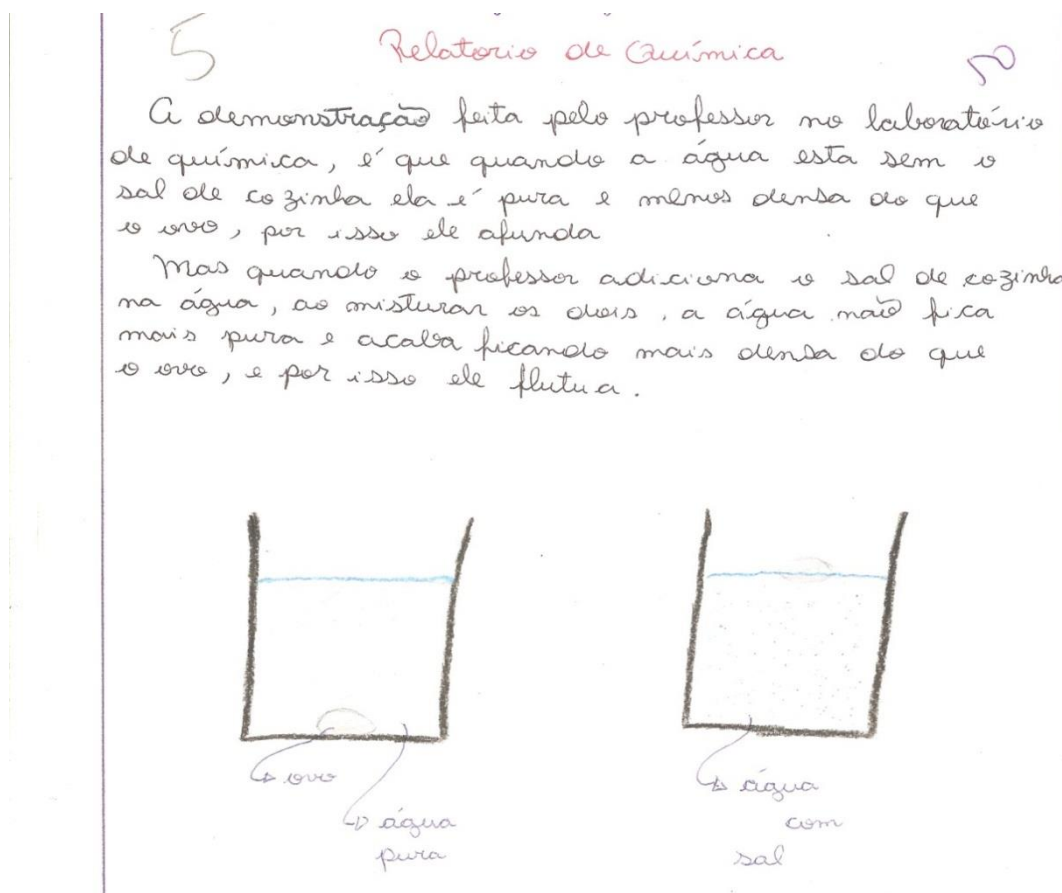 5
Relatorio de Química
A demonstração feita pelo professor no laboratório
de química, é que quando a água esta sem o
sal de cozinha ela é pura e menos densa do que
o ovo, por isso ele afunda
Mas quando o professor adiciona o sal de cozinha
na água, ao misturar os dois, a água não fica
mais pura e acaba ficando mais densa do que
o ovo, e por isso ele flutua.
ovo
água
pura
água
com
sal